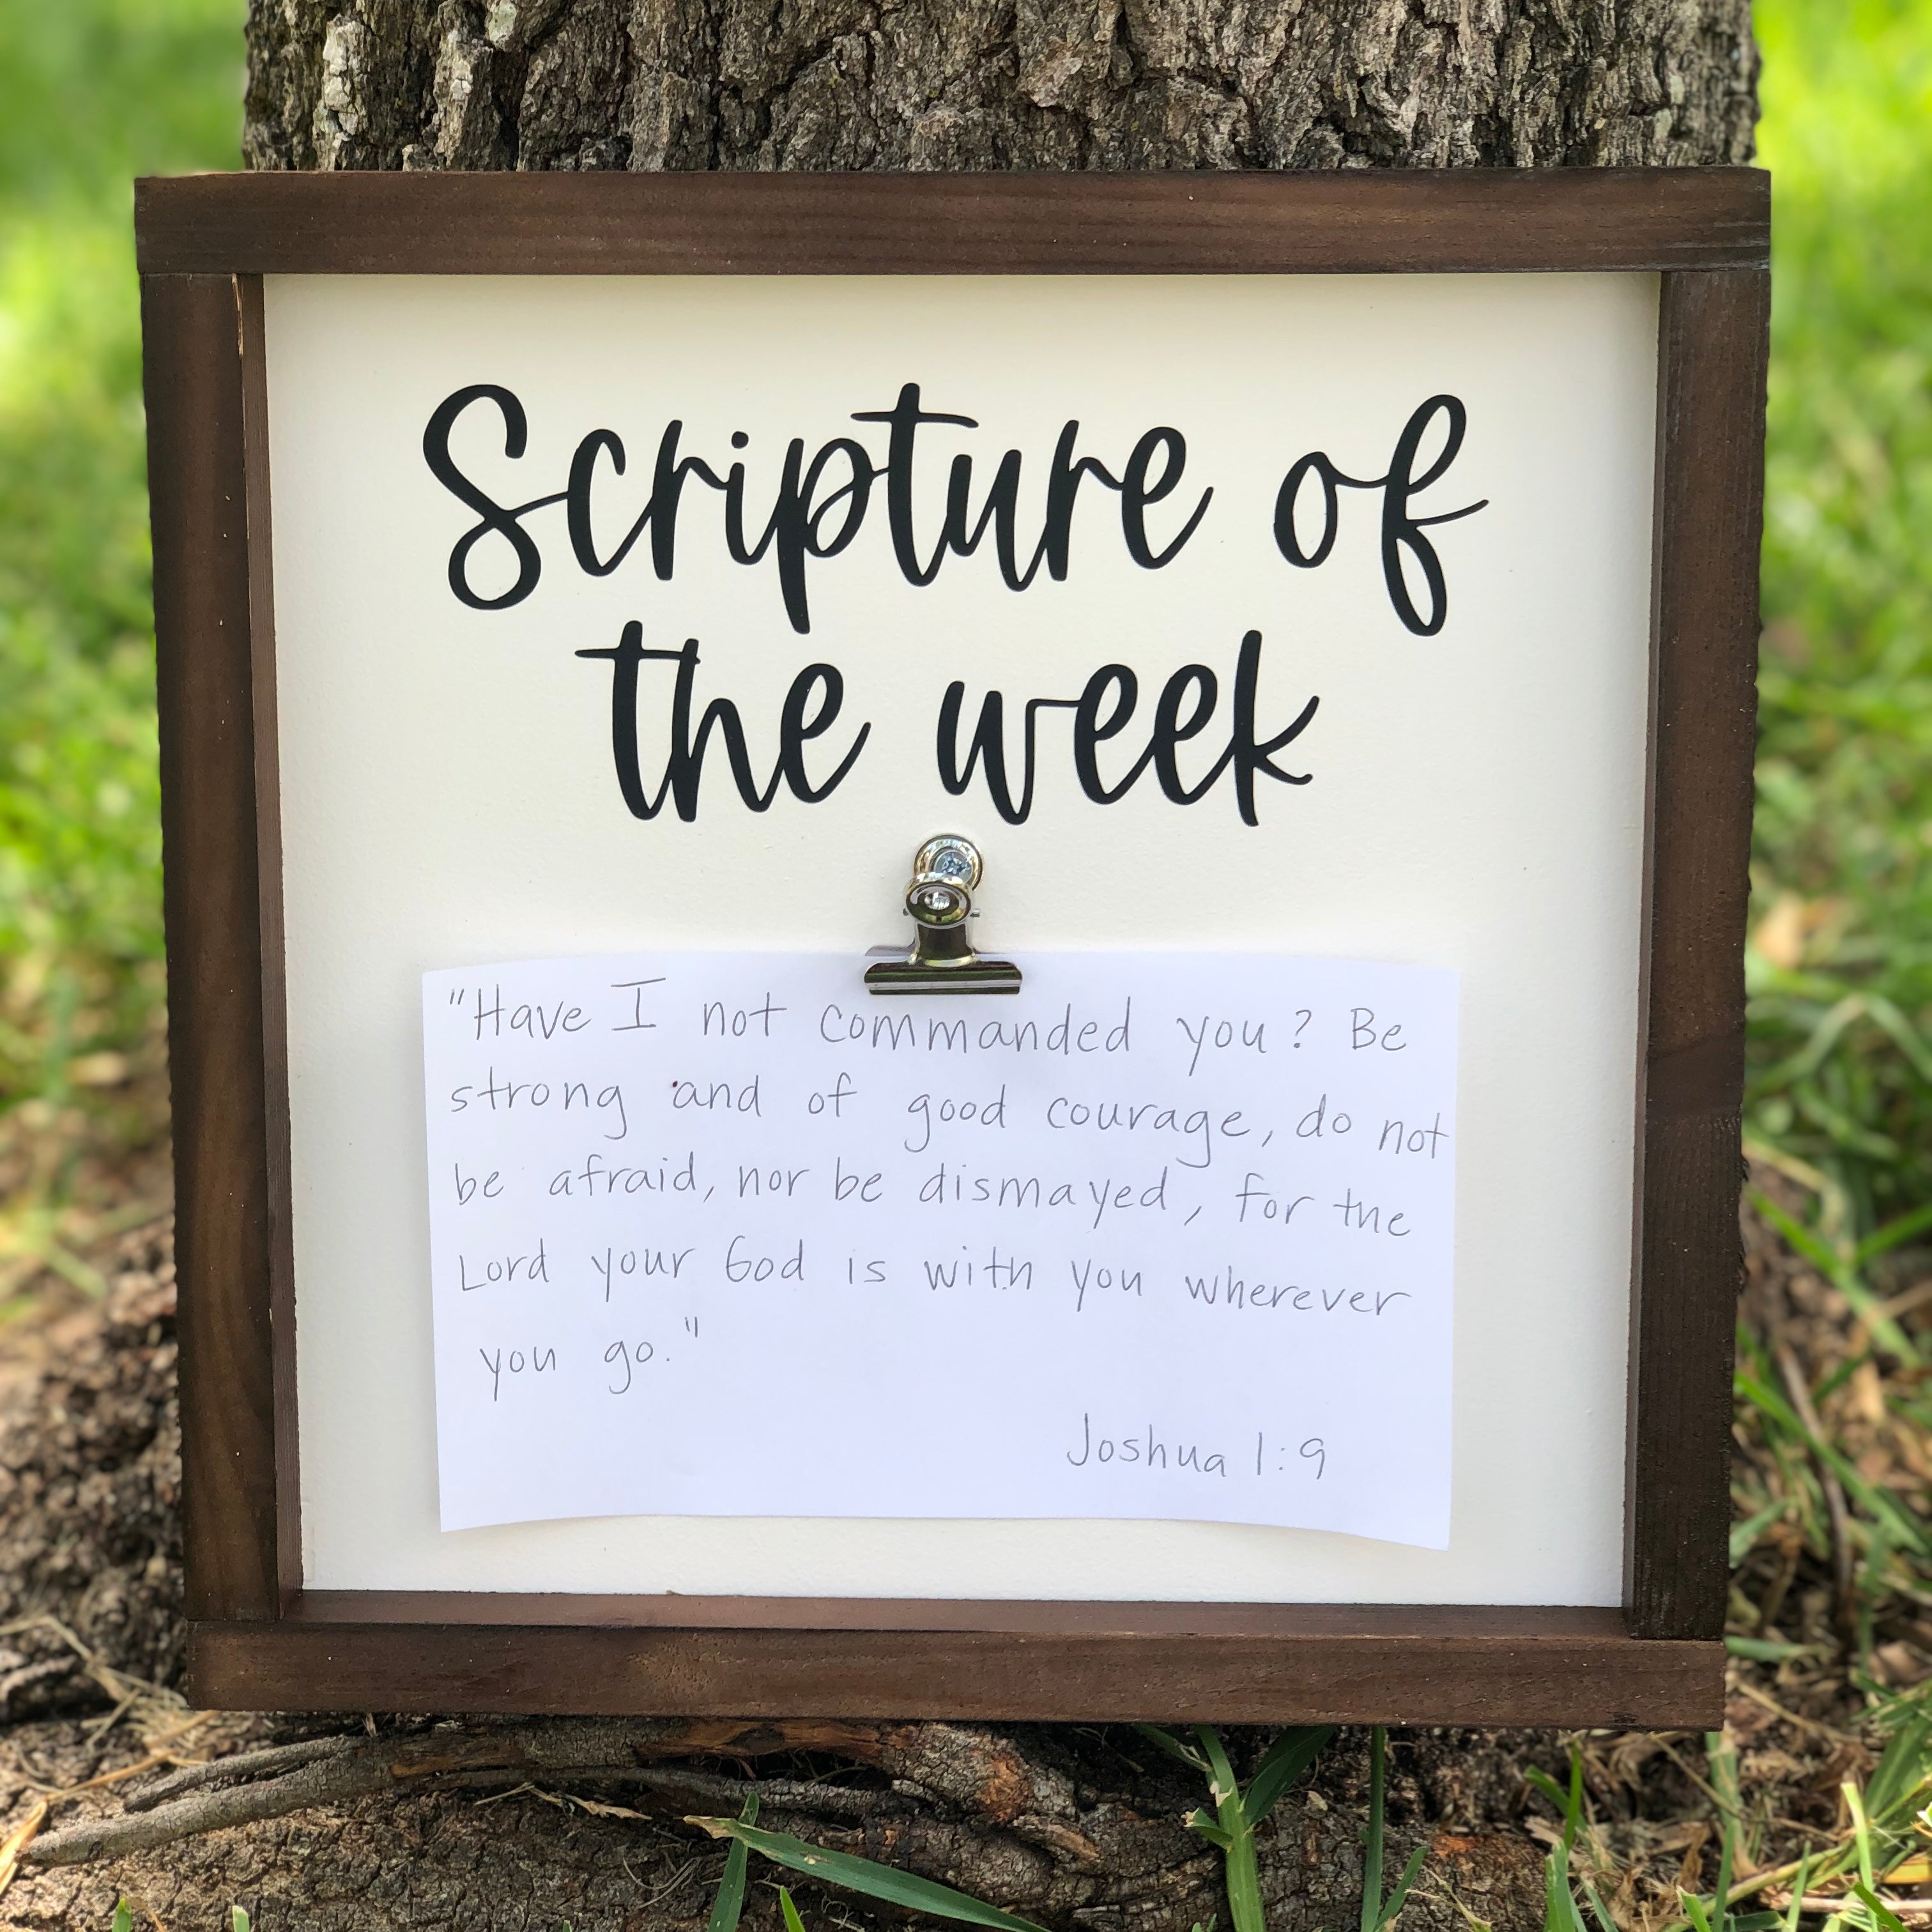 Scripture of
the week
"Have I not commanded you? Be
strong and of good courage, do not
be afraid, nor be dismayed, for the
Lord your God is with you wherever
you go."
Joshua 1:9